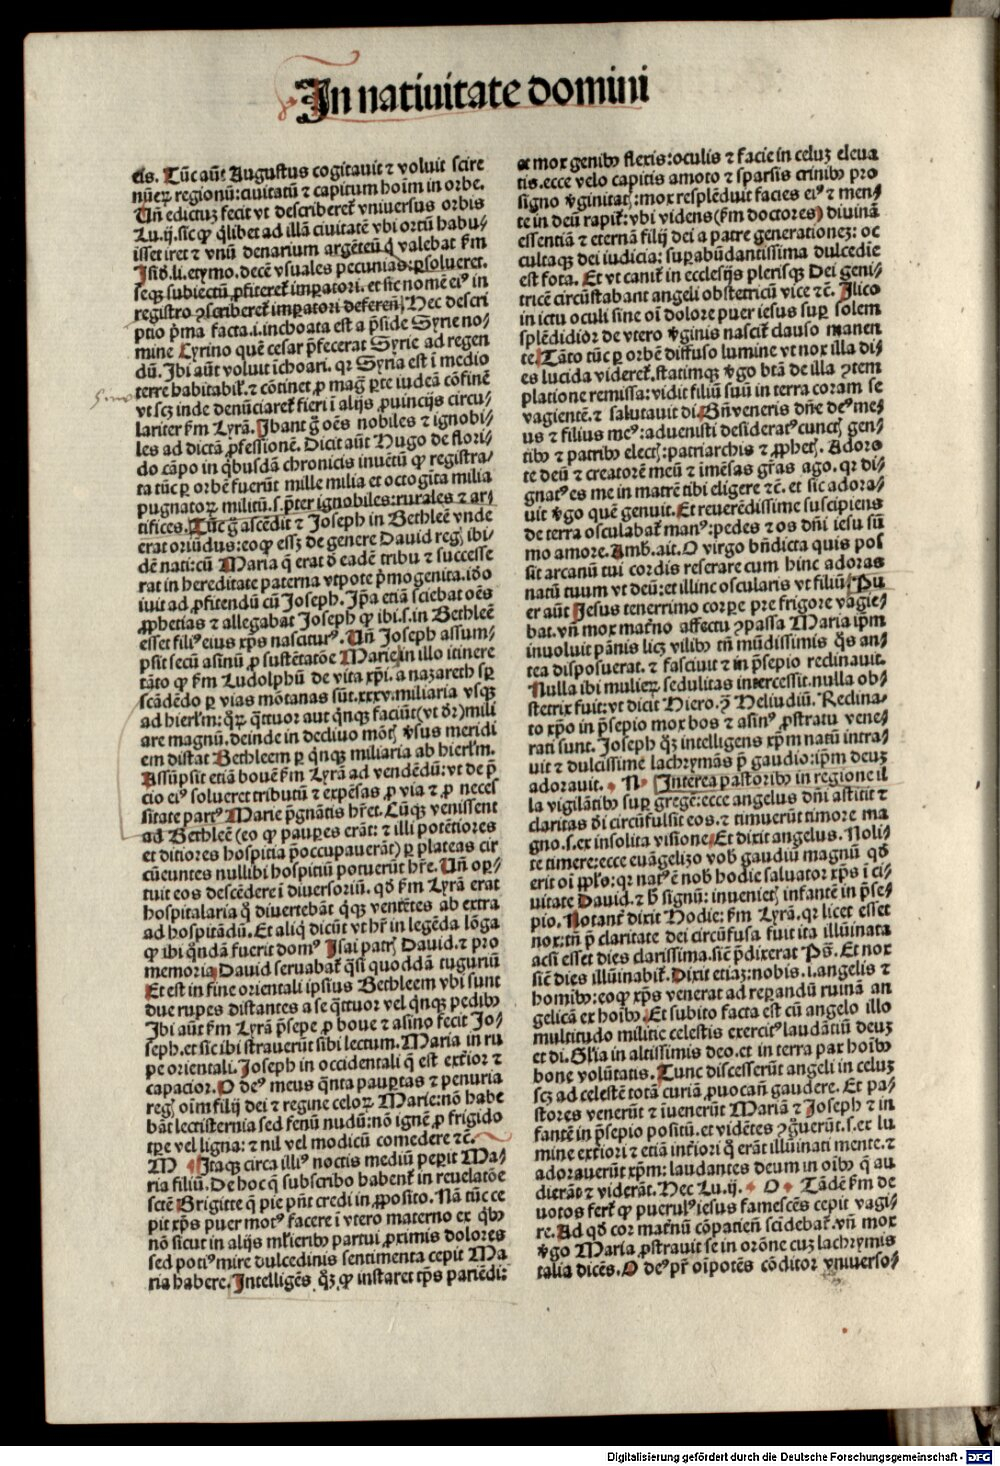 In natiuitate domini
cis. Tūc aūt Augustus cogitauit ⁊ voluit scire
nūeꝝ regionū: ciuitatū ⁊ capitum hoīm in orbe.
Uñ edictuꝫ fecit vt describereť vniuersus orbis
Lu.ij. sic ꝙ q̄libet ad illā ciuitatē vbi ortū habu-
isset iret ⁊ vnū denarium argēteū q̄ valebat ẜm
Isid. li. etymo. decē vsuales pecunias: ꝑsolueret.
seqꝫ subiectū ꝓfitereť imꝑatori. et sic nomē eiꝰ in
registro ꝯscribereť imꝑatori deferenď. Hec descri
ptio p̄ma facta .i. inchoata est a p̄side Syrie no-
mine Cyrino quē cesar p̄fecerat Syrie ad regen
dū. Ibi aūt voluit īchoari. qr Syria est ī medio
terre habitabiľ. ⁊ cōtineť ꝓ mag̃ ꝑte iudeā cōfinē
vt scꝫ inde denūciareť fieri ī alijs ꝓuincijs circu-
lariter ẜm Lyrā. Ibant g̃ oēs nobiles ⁊ ignobi-
les ad dictā ꝓfessionē. Dicit aūt Hugo de flori-
do cāpo in q̄busdā chronicis inuētū ꝙ registra-
ta tūc ꝑ orbē fuerūt mille milia et octogīta milia
pugnatoꝝ militū. s. p̄ter ignobiles: rurales ⁊ ar-
tifices. Tūc g̃ ascēdit ⁊ Joseph in Bethleē vnde
erat oriūdus: eoꝙ essꝫ de genere Dauid reg̃ ibi-
dē nati: cū Maria q̄ erat d̄ eadē tribu ⁊ successe
rat in hereditate paterna vtpote p̄mogenita. iđo
iuit ad ꝓfitendū cū Joseph. Ip̄a etiā sciebat oēs
ꝓphetias ⁊ allegabat Joseph ꝙ ibi. s. in Bethleē
esset filiꝰ eius xp̄s nasciturꝰ. Uñ Joseph assum-
psit secū asinū ꝓ sustētatōe Marie in illo itinere
tāto ꝙ ẜm Ludolphū de vita xp̄i. a nazareth sꝑ
scādēdo ꝑ vias mōtanas sūt .xxxv. miliaria vsqꝫ
ad hierľm: q̄ꝝ q̄ttuor aut q̄nqꝫ faciūt (vt dr̄) mili
are magnū. deinde in decliuo mōt̃ ꝟsus meridi
em distat Bethleem ꝑ q̄nqꝫ miliaria ab hierľm.
Assūpsit etiā bouē ẜm Lyrā ad vendēdū: vt de p̄
cio eiꝰ solueret tributū ⁊ expēsas ꝓ via ⁊ ꝓ neces
sitate partꝰ Marie p̄gnātis hr̄et. Cūqꝫ venissent
ad Bethleē (eo ꝙ pauꝑes erāt: ⁊ illi potētiores
et ditiores hospitia p̄occupauerāt) ꝑ plateas cir
cūeuntes nullibi hospitiū potuerūt hr̄e. Uñ opꝛ-
tuit eos descēdere ī diuersoriū. qď ẜm Lyrā erat
hospitalaria q̄ diuertebāt q̄qꝫ veniētes ab extra
ad hospitādū. Et aliq̄ dicūt vt hr̄ in legēda lōga
ꝙ ibi q̄ndā fuerit domꝰ Isai patr̃ Dauid. ⁊ pro
memoria Dauid seruabať q̄si quoddā tuguriū
Et est in fine orientali ipsius Bethleem vbi sunt
due rupes distantes a se q̄ttuor vel q̄nqꝫ pedibꝰ
Ibi aūt ẜm Lyrā p̄sepe ꝓ boue ⁊ asino fecit Jo-
seph. et sic ibi strauerūt sibi lectum. Maria in ru
pe orientali. Joseph in occidentali q̄ est exťior ⁊
capacior. O deꝰ meus q̄nta pauꝑtas ⁊ penuria
reg̃ oīm filij dei ⁊ regine celoꝝ Marie: nō habe
bāt lectisternia sed fenū nudū: nō ignē ꝓ frigido
tꝑe vel ligna: ⁊ nil vel modicū comedere ⁊c̄.
M Itaqꝫ circa illiꝰ noctis mediū peꝑit Ma-
ria filiū. De hoc q̄ subscribo habenť in reuelatōe
sctē Brigitte q̄ pie pn̄t credi in ꝓposito. Nā tūc ce
pit xp̄s puer motꝰ facere ī vtero materno ex q̄bꝰ
nō sicut in alijs mľieribꝰ partui ꝓximis dolores
sed potiꝰ mire dulcedinis sentimenta cepit Ma
ria habere. Intelligēs q̄ꝫ ꝙ instaret tp̄s pariēdi:
et mox genibꝰ flexis: oculis ⁊ facie in celuꝫ eleua
tis. ecce velo capitis amoto ⁊ sparsis crinibꝰ pro
signo ꝟginitat̃: mox resplēduit facies eiꝰ ⁊ men-
te in deū rapiť: vbi videns (ẜm doctores) diuinā
essentiā ⁊ eternā filij dei a patre generationeꝫ: oc
cultaqꝫ dei iudicia: suꝑabūdantissima dulcedie
est fota. Et vt caniť in ecclesijs plerisqꝫ Dei geni-
tricē circūstabant angeli obstetricū vice ⁊c̄. Ilico
in ictu oculi sine oī dolore puer iesus suꝑ solem
splēdidior de vtero ꝟginis nasciť clauso manen
te. Tāto tūc ꝑ orbē diffuso lumine vt nox illa di-
es lucida videreť. statimqꝫ ꝟgo btā de illa ꝯtem
platione remissa: vidit filiū suū in terra coram se
vagientē. ⁊ salutauit di. Bn̄veneris dn̄e deꝰ me-
us ⁊ filius meꝰ: aduenisti desideratꝰ cunct̃ gen-
tibꝰ ⁊ patribꝰ elect̃: patriarchis ⁊ ꝓphet̃. Adoro
te deū ⁊ creatorē meū ⁊ imēsas gr̄as ago. qr di-
gnatꝰ es me in matrē tibi eligere ⁊c̄. et sic adora-
uit ꝟgo quē genuit. Et reuerēdissime suscipiens
de terra osculabať manꝰ: pedes ⁊ os dn̄i iesu sū
mo amore. Amb. ait. O virgo bn̄dicta quis pos
sit arcanū tui cordis reserare cum hinc adoras
natū tuum vt deū: et illinc oscularis vt filiū. Pu
er aūt Iesus tenerrimo corpꝛe pre frigore vagie-
bat. vñ mox maťno affectu ꝯpassa Maria ip̄m
inuoluit pānis licꝫ vilibꝰ tn̄ mūdissimis q̄s an-
tea disposuerat. ⁊ fasciuit ⁊ in p̄sepio reclinauit.
Nulla ibi mulieꝝ sedulitas intercessit. nulla ob-
stetrix fuit: vt dicit Hiero. ꝯ̄ Heluidiū. Reclina-
to xp̄o in p̄sepio mox bos ⁊ asinꝰ ꝓstratu vene-
rati sunt. Joseph q̄ꝫ intelligens xp̄m natū intra-
uit ⁊ dulcissime lachrymās p̄ gaudio: ip̄m deuꝫ
adorauit. N Interea pastoribꝰ in regione il
la vigilātibꝰ suꝑ gregē: ecce angelus dn̄i astitit ⁊
claritas đi circūfulsit eos. ⁊ timuerūt timore ma
gno. s. ex insolita visione. Et dixit angelus. Noli-
te timere: ecce euāgelizo vob̃ gaudiū magnū qď
erit oī ppľo: qr natꝰ ē nob̃ hodie saluator xp̄s ī ci-
uitate Dauid. ⁊ ħ signū: inueniet̃ infantē in p̄se-
pio. Notanť dixit Hodie: ẜm Lyrā. qr licet esset
nox: tn̄ p̄ claritate dei circūfusa fuit ita illūinata
acsi esset dies clarissima. sic̄ p̄dixerat Ps̄. Et nox
sic̄ dies illūinabiť. Dixit etiaꝫ: nobis .i. angelis ⁊
homibꝰ: eoꝙ xp̄s venerat ad reꝑandū ruinā an
gelicā ex hoībꝰ. Et subito facta est cū angelo illo
multitudo militie celestis exercitꝰ laudātiū deuꝫ
et di. Gľia in altissimis deo. et in terra pax hoībꝰ
bone volūtatis. Tunc discesserūt angeli in celuꝫ
scꝫ ad celestē totā curiā ꝓuocañ gaudere. Et pa-
stores venerūt ⁊ īuenerūt Mariā ⁊ Joseph ⁊ in
fantē in p̄sepio positū. et vidētes ꝯg̃uerūt. s. ex lu
mine exťiori ⁊ etiā inťiori q̊ erāt illūinati mente. ⁊
adorauerūt xp̄m: laudantes deum in oībꝰ q̄ au
dierāt ⁊ viderāt. Hec Lu.ij. O Tādē ẜm de
uotos ferť ꝙ puerulꝰ iesus famescēs cepit vagi-
re. Ad qď cor maťnū cōpatieñ scīdebať. vñ mox
ꝟgo Maria ꝓstrauit se in orōne cuꝫ lachrymis
talia dicēs. O deꝰ pr̄ oīpotēs cōditor vniuerso-
Digitalisierung gefördert durch die Deutsche Forschungsgemeinschaft - DFG